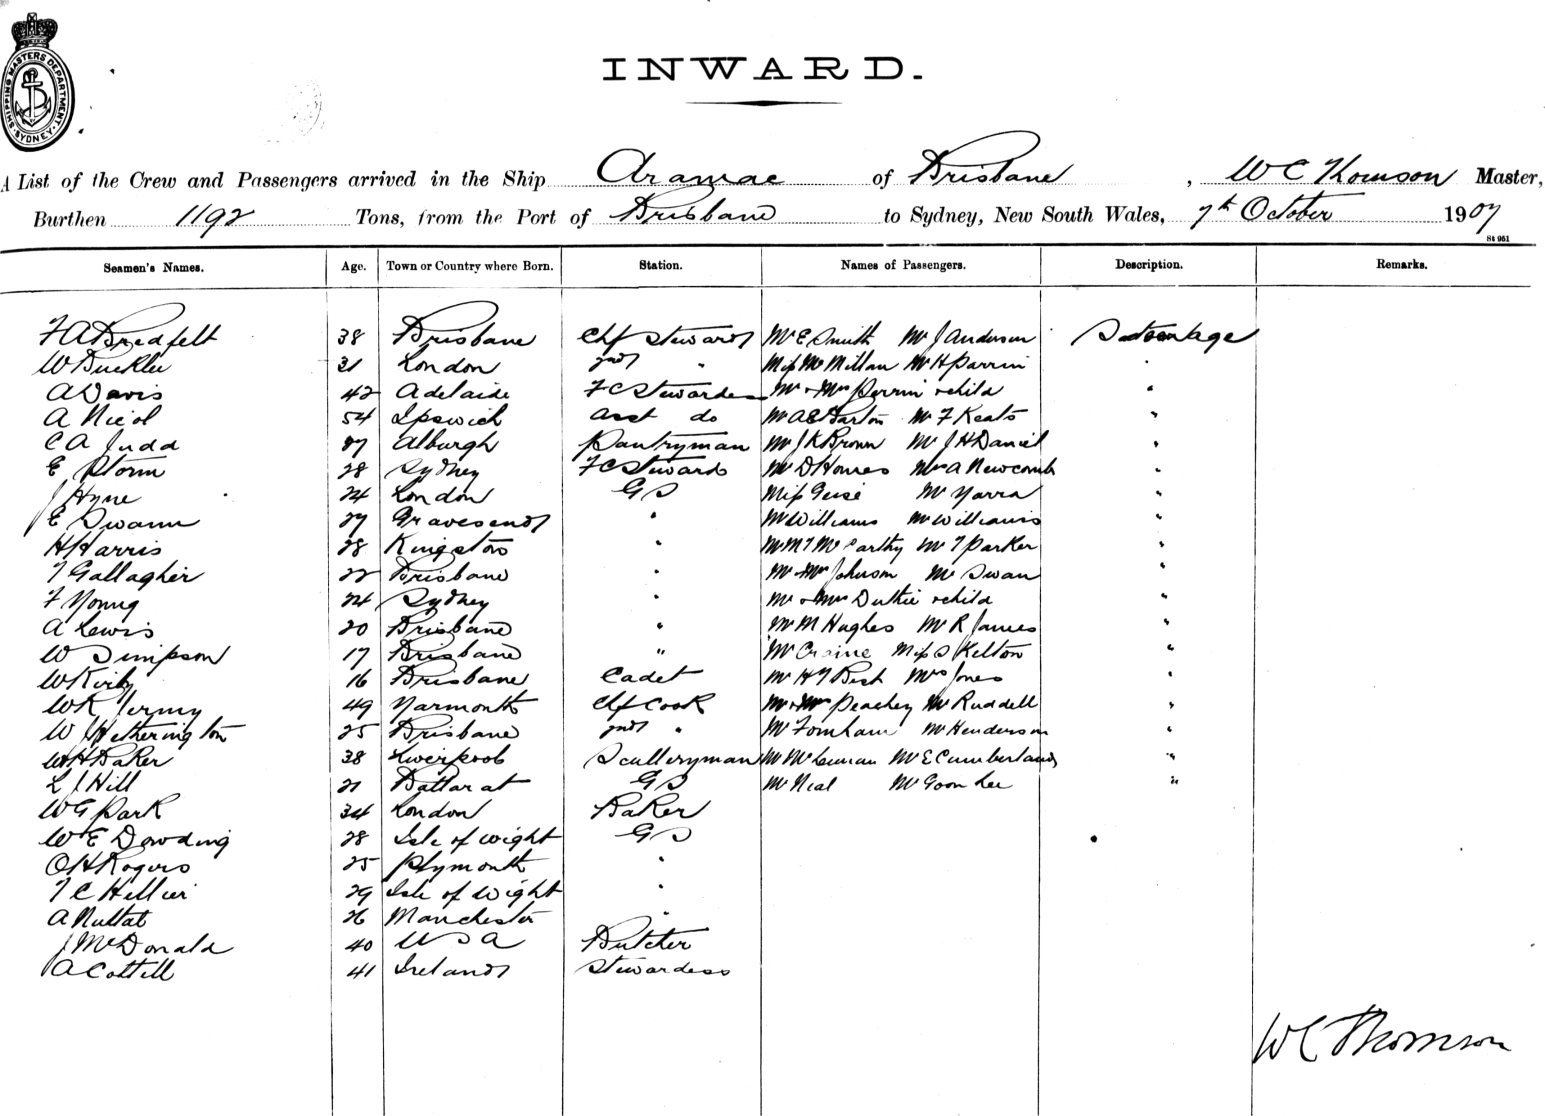 SHIPPING MASTERS DEPARTMENT. SYDNEY
INWARD.
A List of the Crew and Passengers arrived in the Ship Aramac of Brisbane, W C Thomson Master,
Burthen 1192 Tons, from the Port of Brisbane to Sydney, New South Wales, 7th October 1907
St 961
Seamen's Names. Age. Town or Country where Born. Station. Names of Passengers. Description. Remarks.
F A Bredfelt 38 Brisbane Chf Steward Mr E Smith Mr J Anderson
W Buckler 31 London 2nd " Miss McMillan Mr H Parrin "
A Davis 42 Adelaide F C Stewardess Mr + Mrs Perrin + child "
A Nicol 54 Ipswich Asst do Mr A E Barton Mr F Keats "
C A Judd 27 Alburgh Pantryman Mr J K Brown Mr J H Daniel "
E Storm 28 Sydney F C Steward Mr D Homes Mrs A Newcomb "
J Hyne 24 London G S Miss Mr Yarra "
E Swann 27 Gravesend " Mr Williams Mr Williams "
H Harris 28 Kingston " Mr M T McCarthy Mr T Parker "
T Gallagher 22 Brisbane " Mr + Mrs Johnson Mr Swan "
F Young 24 Sydney " Mr + Mrs Duthie + child "
A Lewis 20 Brisbane " Mr M Hughes Mr R James "
W Simpson 17 Brisbane " Mr Craine Miss S Kelton "
W Kirby 16 Brisbane Cadet Mr H T Bish Mrs Jones "
W K Jermy 49 Yarmouth Chf Cook Mr + Mrs Peachey Mr Ruddell "
W J Hetherington 25 Brisbane 2nd " Mr Fornham Mr Henderson "
W H Baker 38 Liverpool Sculleryman Mr McLennan Mr E Cumberland "
L J Hill 21 Ballarat G S Mr Neal Mr Goon Lee "
W G Park 34 London Baker
W E Dowding 28 Isle of Wight G S
O H Rogers 25 Plymouth "
T C Hillier 29 Isle of Wight "
A Nuttat 26 Manchester "
J McDonald 40 U S A Butcher
A Cottell 41 Ireland Stewardess
W C Thomson